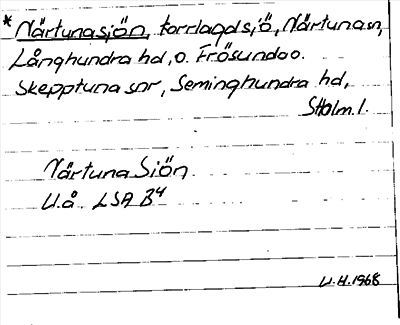 * Närtunasjön, torrlagd sjö, Närtuna sn,
Långhundra hd, o. Frösunda o.
Skepptuna snr, Seminghundra hd,
Sthlm. l.
Närtuna Siön
U.å. LSA B4
U.H. 1968